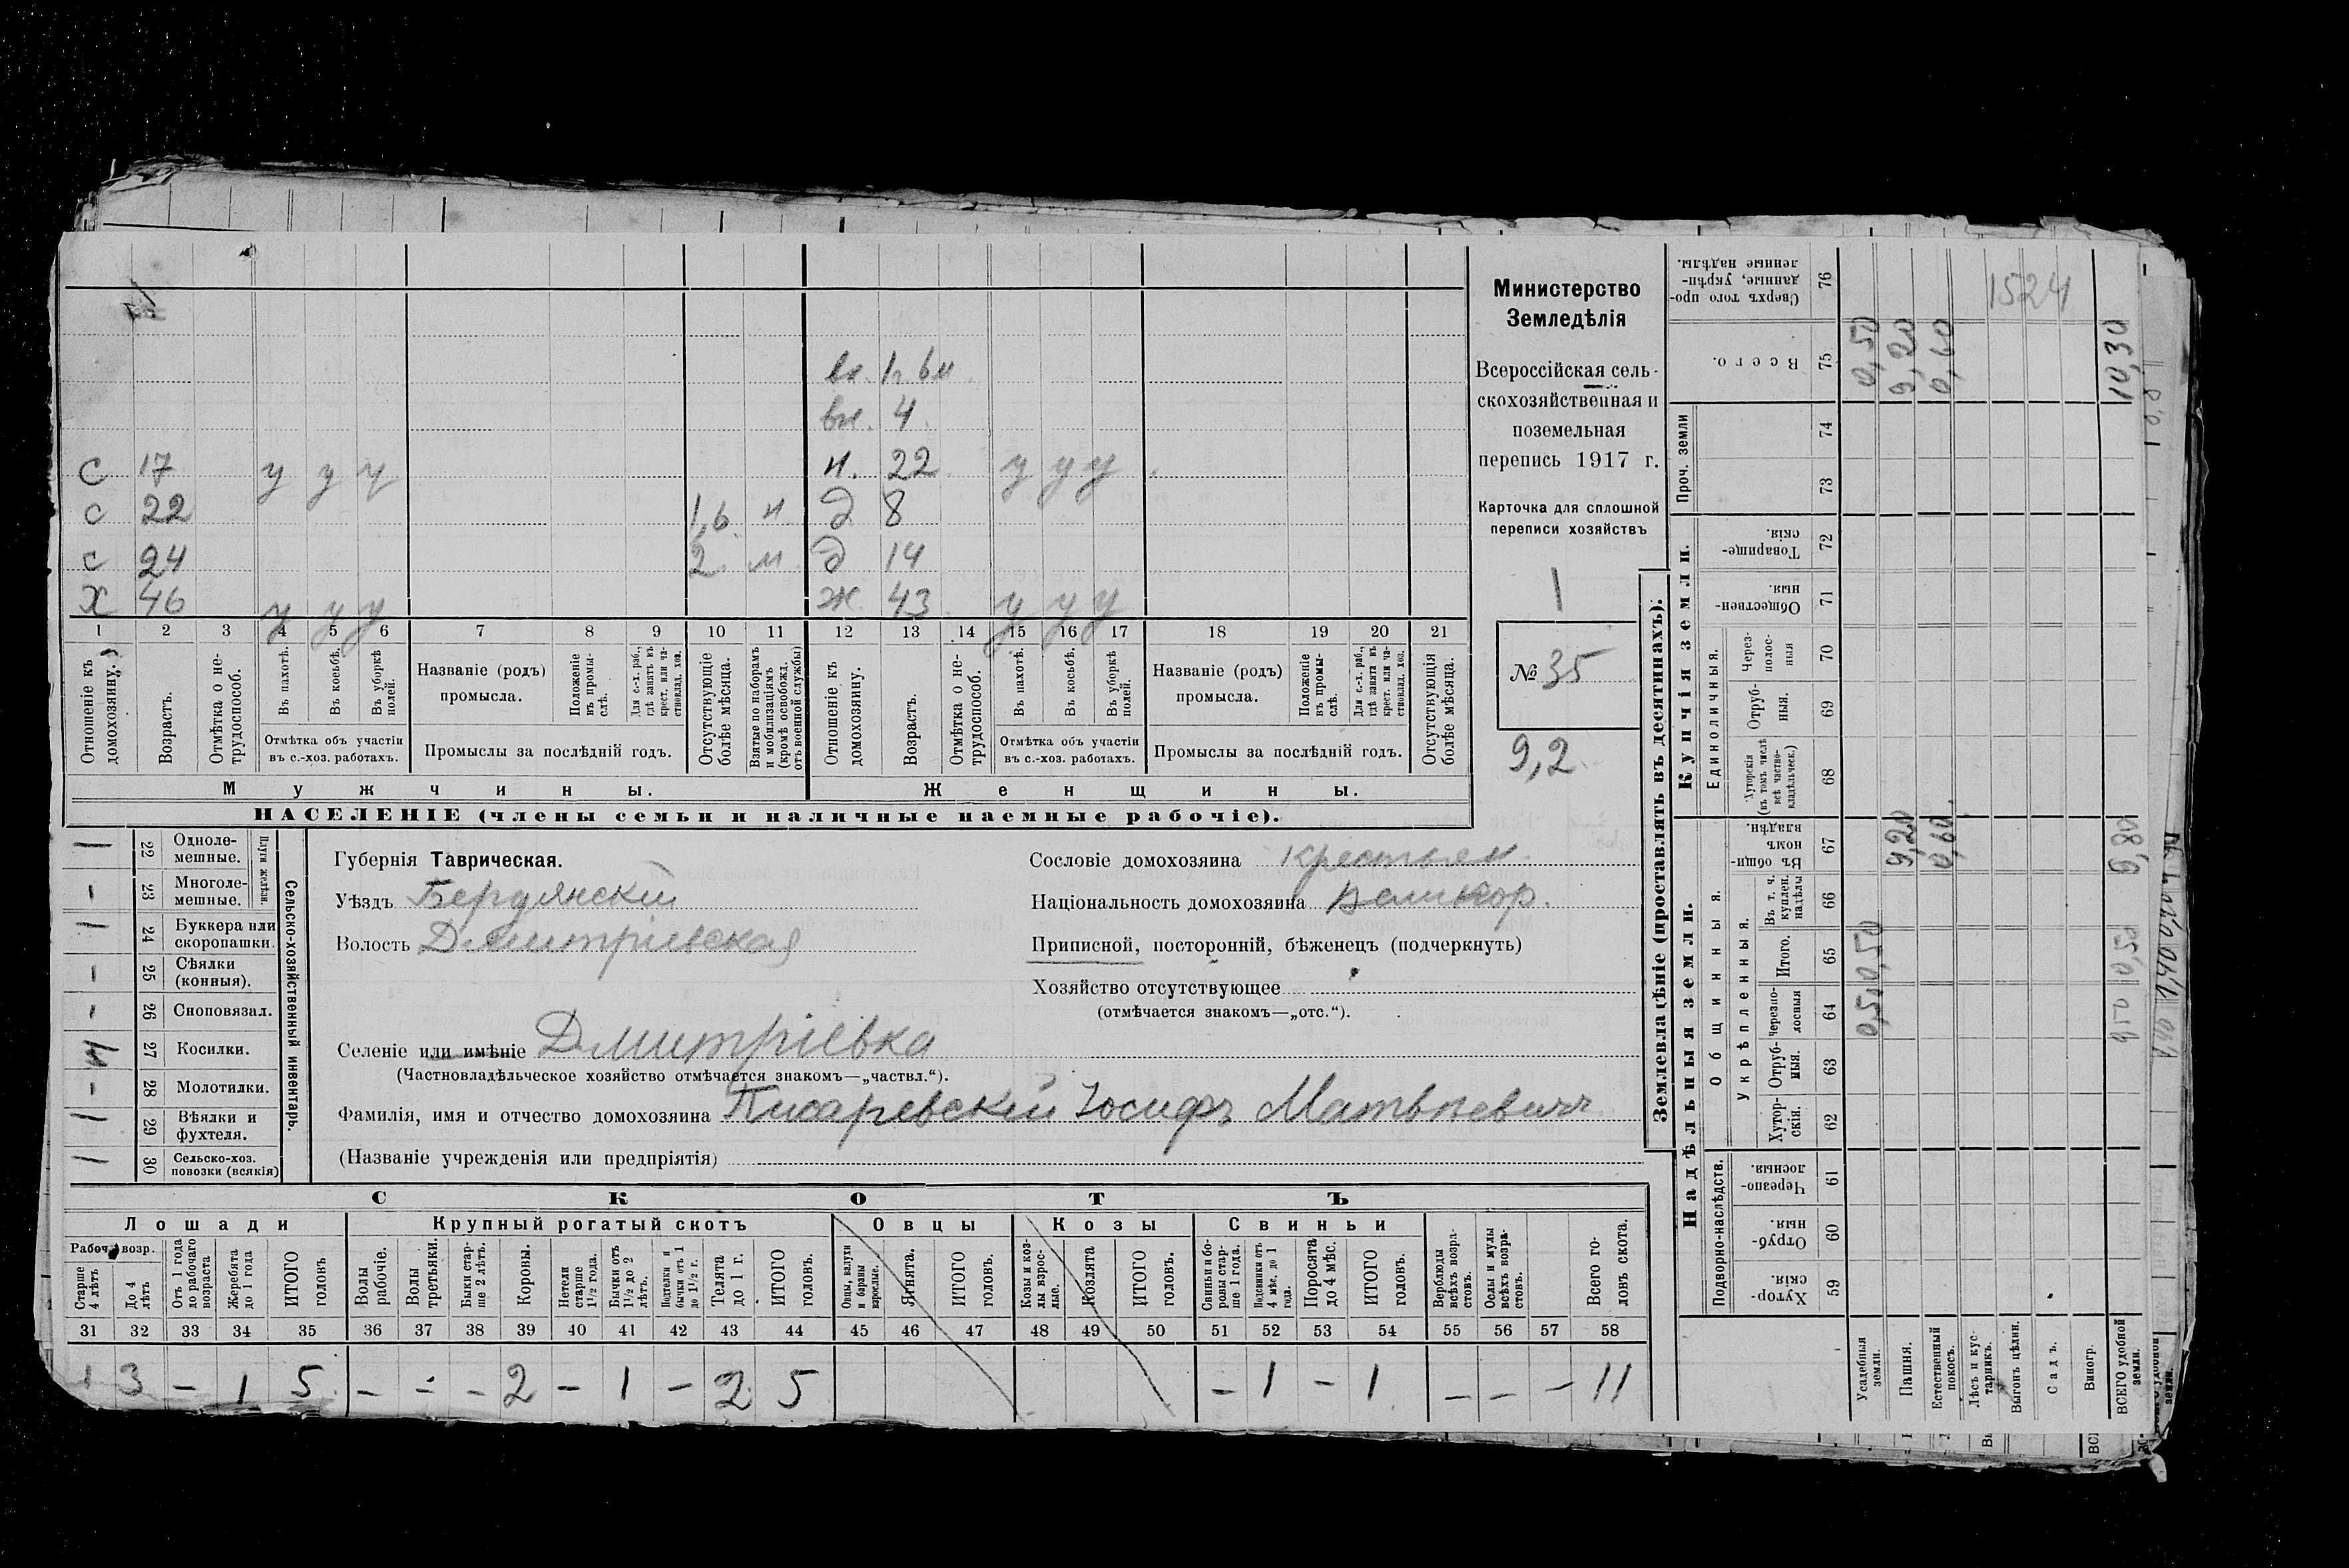 вн. 1 г. 6 м
вн. 4
С 17 у у у н. 22 у у у
с 22 1,6 м д 8
с 24 2 м д 14
Х 46 у у у ж 43 у у у
1 2 3 4 5 6 7 8 9 10 11 12 13 14 15 16 17 18 19 20 21
Отношеніе къ домохозяину.
Возрастъ.
Отмѣтка о не-
трудоспособ.
Въ пахотѣ.
Въ косьбѣ.
Въ уборкѣ
полей.
Отмѣтка объ участіи
въ с.-хоз. работахъ.
Названіе (родъ)
промысла.
Положеніе
въ промы-
слѣ.
Для с.-х. раб.,
гдѣ занятъ въ
крест. или ча-
стновлад. хоз.
Промыслы за послѣдній годъ.
Отсутствующіе
болѣе мѣсяца.
Взятые по наборамъ
и мобилизаціямъ
(кромѣ освобожд.
отъ военной службы)
Отношеніе къ
домохозяину.
Возрастъ.
Отмѣтка о не-
трудоспособ.
Въ пахотѣ.
Въ косьбѣ.
Въ уборкѣ
полей.
Отмѣтка объ участіи
въ с.-хоз. работахъ.
Названіе (родъ)
промысла.
Положеніе
въ промы-
слѣ.
Для с.-х. раб.,
гдѣ занята въ
крест. или ча-
стновлад. хоз.
Промыслы за послѣдній годъ.
Отсутствующія
болѣе мѣсяца.
Мужчины. Женщины.
НАСЕЛЕНІЕ (члены семьи и наличные наемные рабочіе).
Министерство
Земледѣлія
Всероссійская сель-
скохозяйственная и
поземельная
перепись 1917 г.
Карточка для сплошной
переписи хозяйствъ
1
№ 35
9,2
1 22 Одноле-
мешные.
- 23 Многоле-
мешные.
Плуги желѣзн.
1 24 Буккера или
скоропашки.
- 25 Сѣялки
(конныя).
- 26 Сноповязал.
27 Косилки.
- 28 Молотилки.
1 29 Вѣялки и
фухтеля.
1 30 Сельско-хоз.
повозки (всякія)
Сельско-хозяйственный инвентарь.
Губернія Таврическая.
Уѣздъ Бердянскій
Волость Дмитріевская
Селеніе или имѣніе Дмитріевка
(Частновладѣльческое хозяйство отмѣчается знакомъ—„частвл.“).
Фамилія, имя и отчество домохозяина Писаревскій Іосифъ Матвѣевичъ
(Названіе учрежденія или предпріятія)
Сословіе домохозяина крестьян.
Національность домохозяина Великор.
Приписной, посторонній, бѣженецъ (подчеркнуть)
Хозяйство отсутствующее
(отмѣчается знакомъ—„отс.“).
СКОТЪ
Лошади Крупный рогатый скотъ Овцы Козы Свиньи
Рабоч. возр.
Старше
4 лѣтъ
До 4
лѣтъ
Отъ 1 года
до рабочаго
возраста
Жеребята
до 1 года
ИТОГО
головъ
Волы
рабочіе.
Волы
третьяки.
Быки стар-
ше 2 лѣтъ.
Коровы.
Нетели
старше
1½ года.
Бычки отъ
1½ до 2
лѣтъ.
Подтелки и
бычки отъ 1
до 1½ г.
Телята
до 1 г.
ИТОГО
головъ.
Овцы, валухи
и бараны
взрослые.
Ягнята.
ИТОГО
головъ.
Козы и коз-
лы взрос-
лые.
Козлята
ИТОГО
головъ.
Свиньи и бо-
ровы стар-
ше 1 года.
Подсвинки отъ
4 мѣс. до 1
года.
Поросята
до 4 мѣс.
ИТОГО
головъ.
Верблюды
всѣхъ возра-
стовъ.
Ослы и мулы
всѣхъ возра-
стовъ.
Всего го-
ловъ скота.
31 32 33 34 35 36 37 38 39 40 41 42 43 44 45 46 47 48 49 50 51 52 53 54 55 56 57 58
1 3 - 1 5 - - - 2 - 1 - 2 5 - 1 - 1 - - - 11
Землевладѣніе (проставлять въ десятинахъ).
Надѣльныя земли. Купчія земли. Проч. земли
Подворно-наслѣдств.
Общинныя.
Укрѣпленныя.
Единоличныя.
Хутор-
скія. 59
Отруб-
ныя. 60
Черезпо-
лосныя. 61
Хутор-
скія. 62
Отруб-
ныя. 63
Черезпо-
лосныя 64
Итого. 65
Въ т. ч.
куплен.
надѣлы 66
Въ общи-
номъ
владѣн. 67
Хуторскія
(въ томъ числѣ
всѣ частно-
владѣльческ.) 68
Отруб-
ныя. 69
Через-
полос-
ныя 70
Обществен-
ныя. 71
Товарище-
скія. 72
73
74
Всего. 75
Сверхъ того про-
данные, укрѣп-
ленные надѣлы. 76
Усадебныя
земли. 0,50 0,50 0,50
Пашня. 9,20 9,20
Естественный
покосъ. 0,60 0,60
Лѣсъ и кус-
тарникъ.
Выгонъ цѣлин.
Садъ.
Виногр.
ВСЕГО удобной
земли. 0,50 9,80 10,30
1524